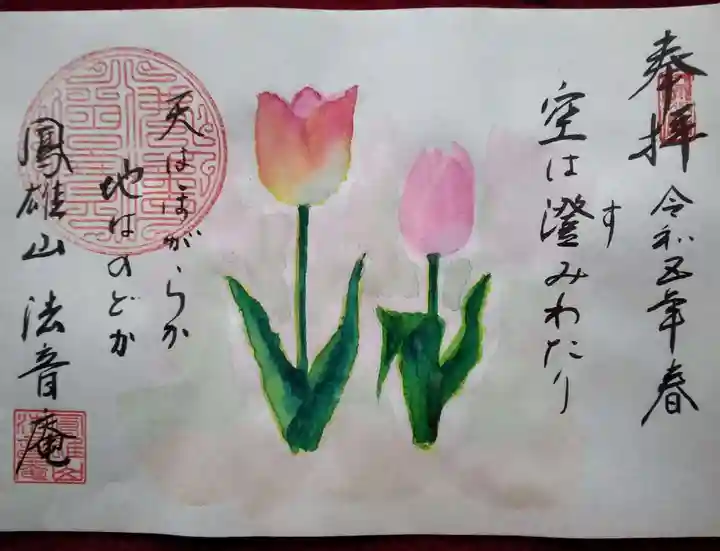 奉拝 令和五年春
空は澄みわたり
す
天はほがらか
地はのどか
鳳雄山 法音庵